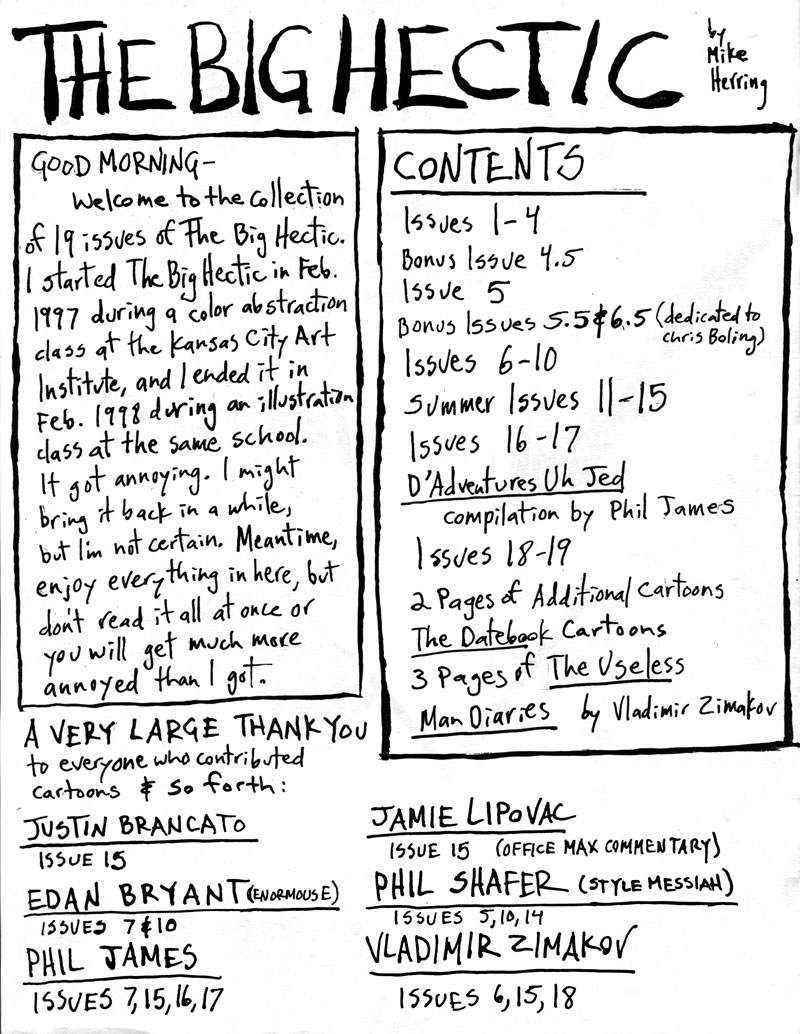 THE BIG HECTIC
by
Mike
Herring
GOOD MORNING-
Welcome to the collection
of 19 issues of The Big Hectic.
I started The Big Hectic in Feb.
1997 during a color abstraction
class at the Kansas City Art
Institute, and I ended it in
Feb. 1998 during an illustration
class at the same school.
It got annoying. I might
bring it back in a while,
but I'm not certain. Meantime,
enjoy everything in here, but
don't read it all at once or
you will get much more
annoyed than I got.
CONTENTS
Issues 1-4
Bonus Issue 4.5
Issue 5
Bonus Issues 5.5 & 6.5 (dedicated to
Chris Boling)
Issues 6-10
Summer Issues 11-15
Issues 16-17
D'Adventures Uh Jed
compilation by Phil James
Issues 18-19
2 Pages of Additional Cartoons
The Datebook Cartoons
3 Pages of The Useless
Man Diaries by Vladimir Zimakov
A VERY LARGE THANK YOU
to everyone who contributed
cartoons & so forth:
JUSTIN BRANCATO
ISSUE 15
EDAN BRYANT (ENORMOUSE)
ISSUES 7 & 10
PHIL JAMES
ISSUES 7, 15, 16, 17
JAMIE LIPOVAC
ISSUE 15 (OFFICE MAX COMMENTARY)
PHIL SHAFER (STYLE MESSIAH)
ISSUES 5, 10, 14
VLADIMIR ZIMAKOV
ISSUES 6, 15, 18